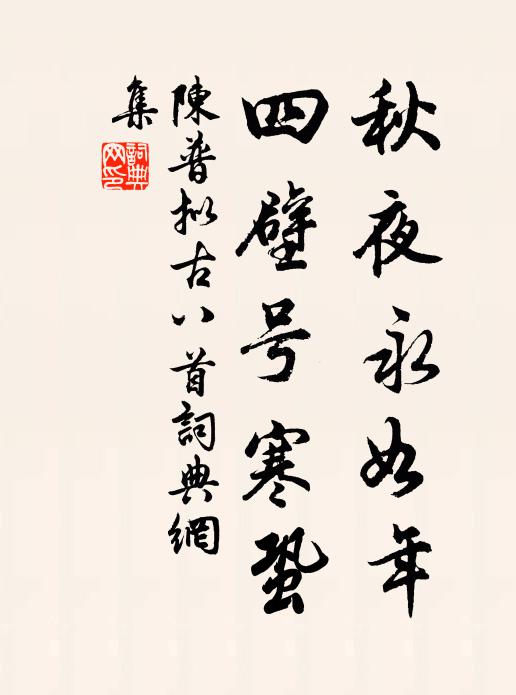 秋夜永如年
四壁号寒蛩
陳普拟古八首詞典網
集
詞典網印